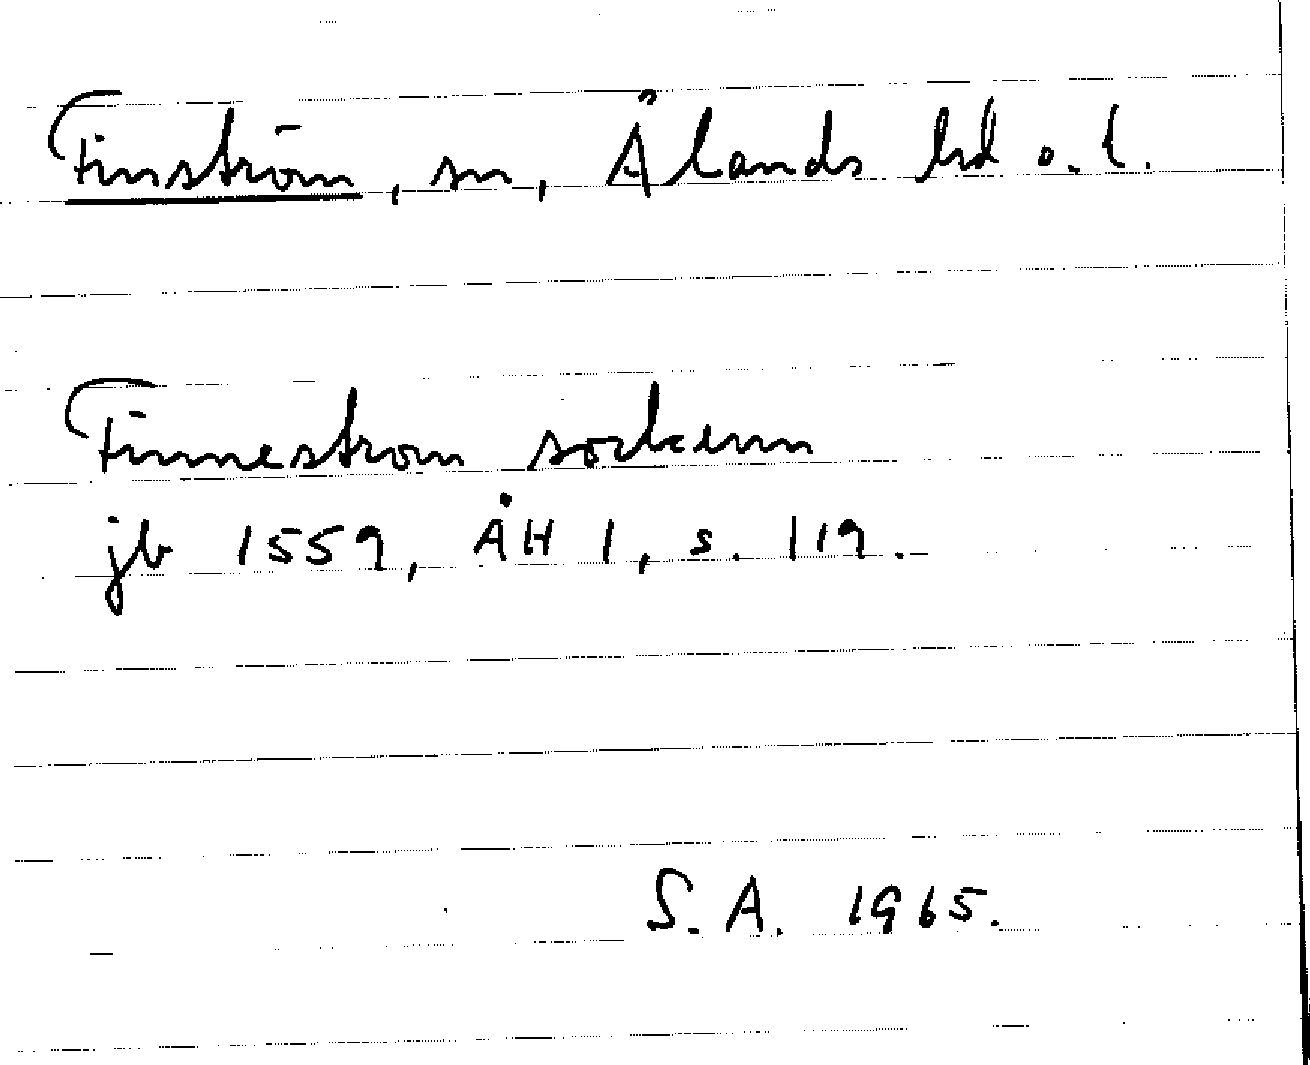 Finström, sn, Ålands hd o. l.
Finnestrom sockenn
jb 1559, ÅH 1, s. 119.
S. A. 1965.